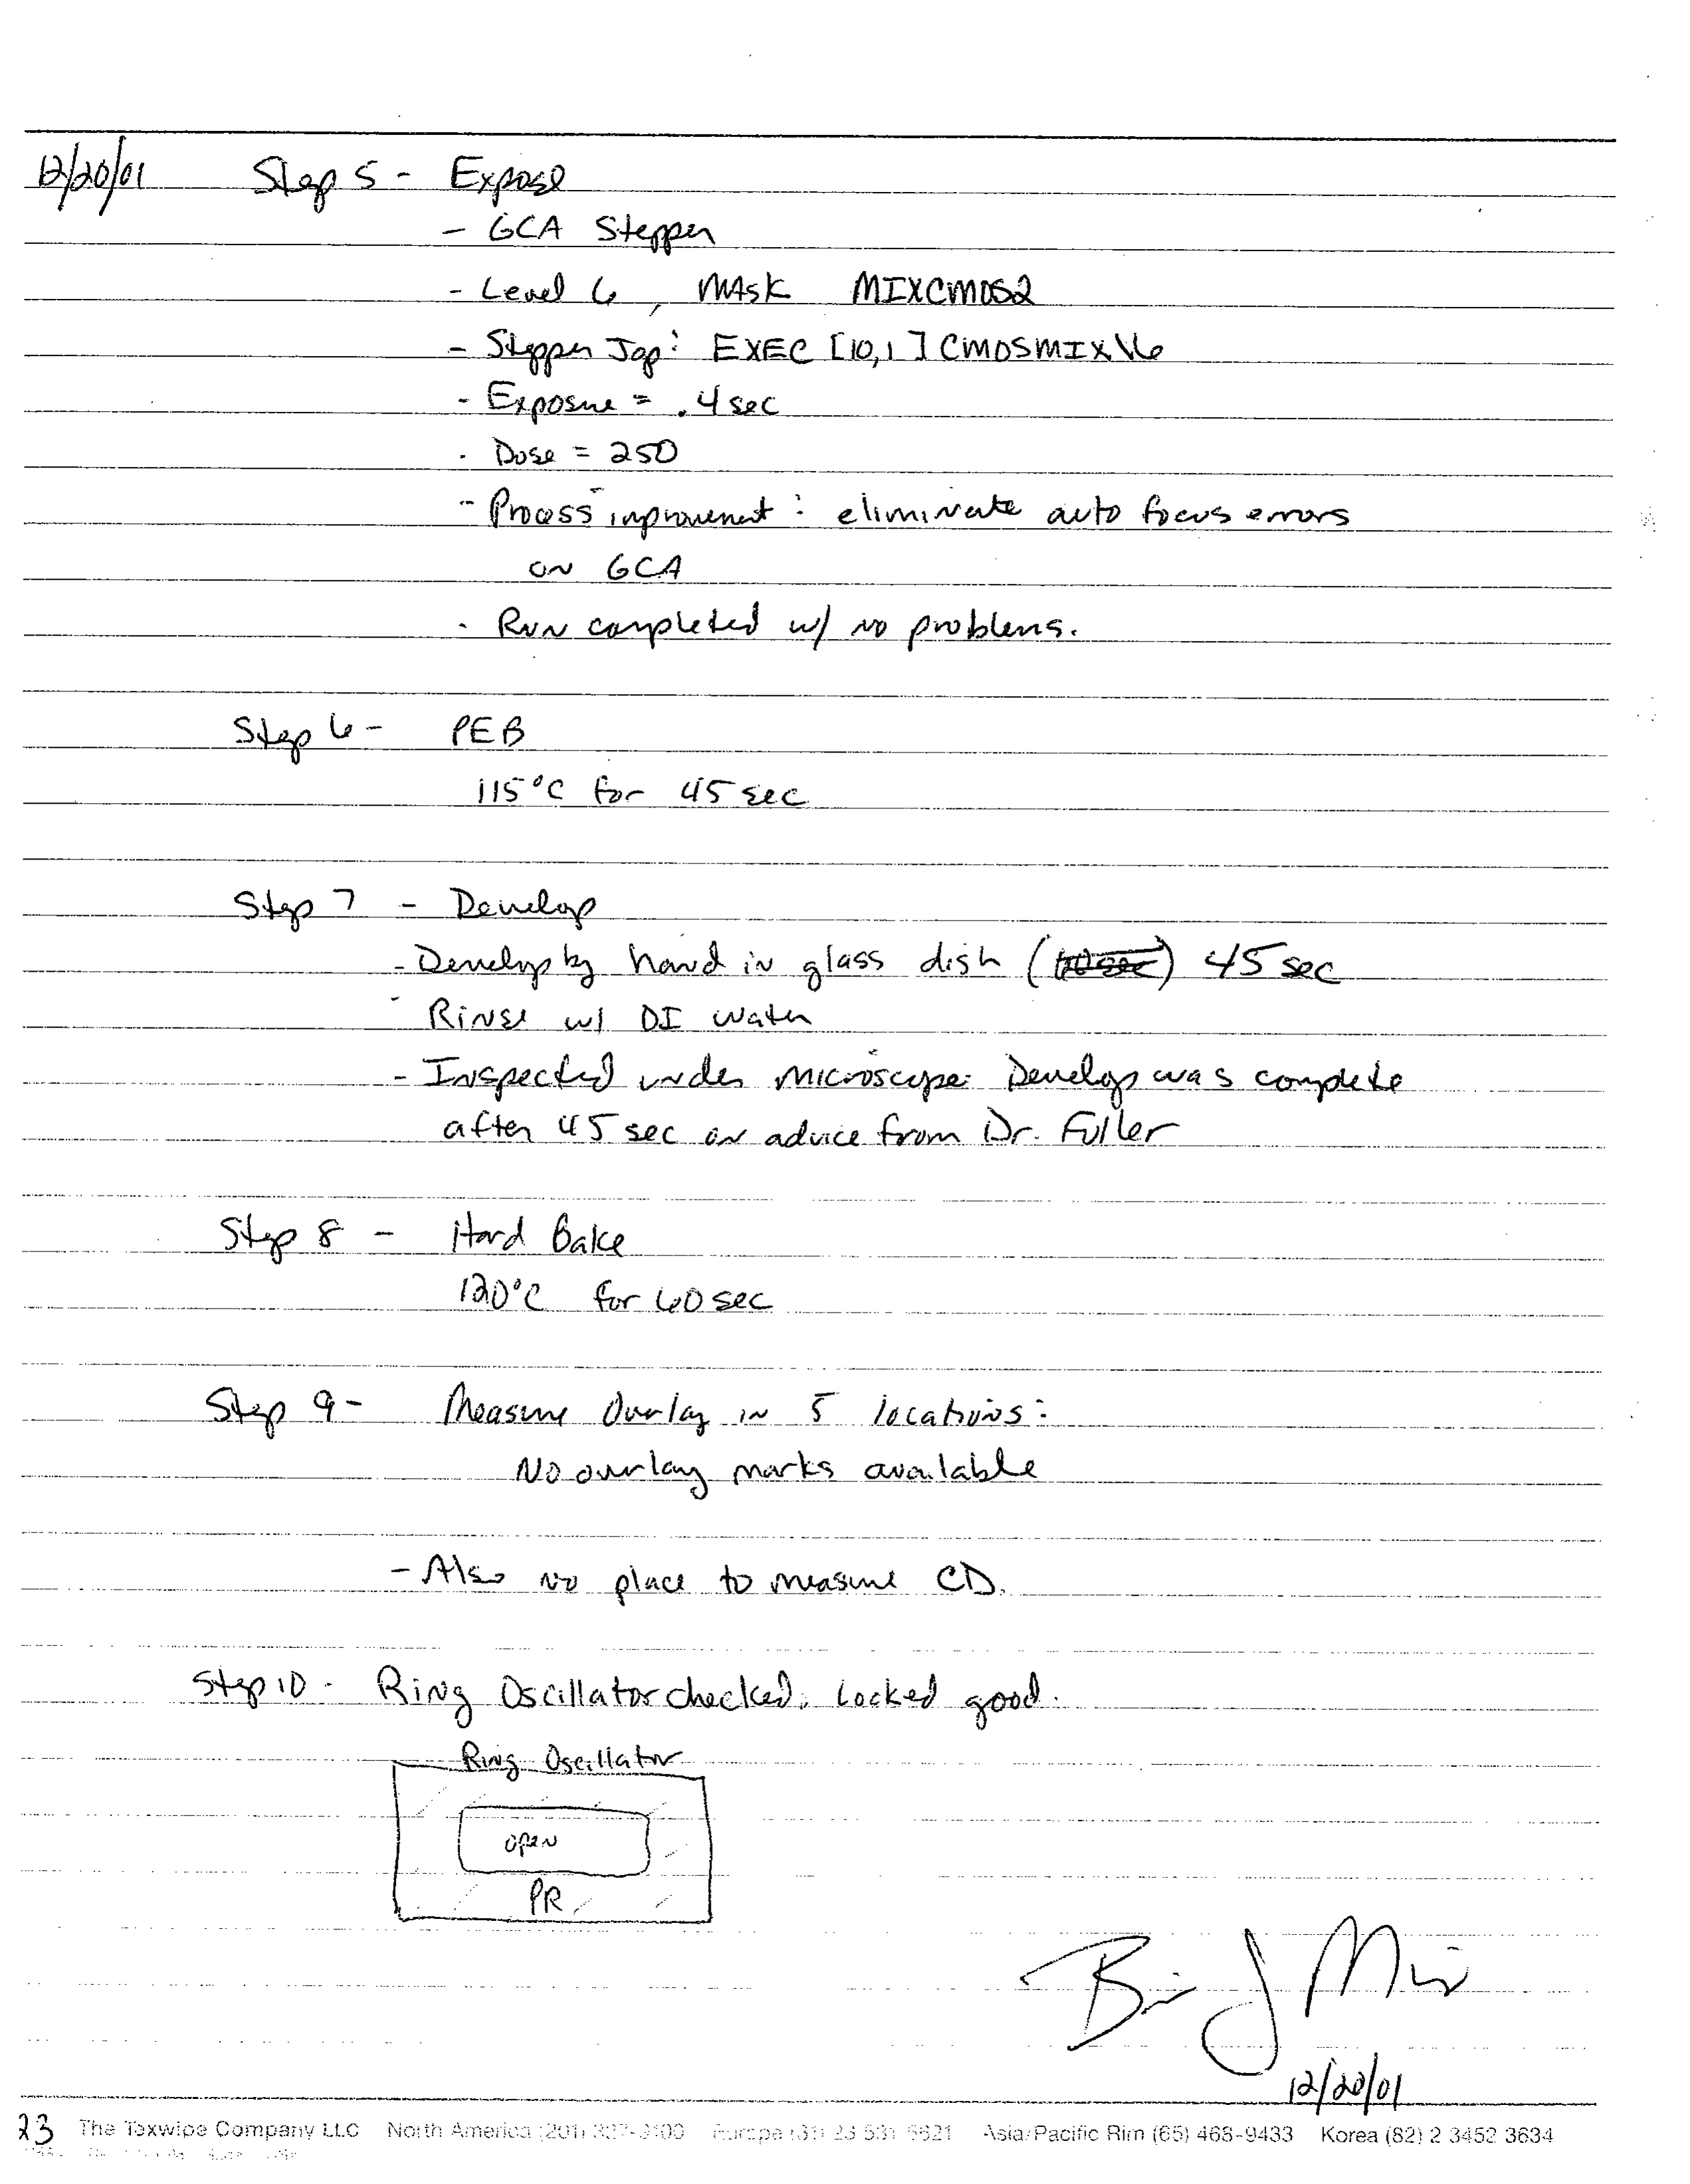 12/20/01 Step 5 - Expose
- GCA Stepper
- Level 6, Mask MIXCMOS2
- Stepper Jop: EXEC [10,1] CMOSMIX\6
- Exposure = .4 sec
- Dose = 250
- Process improvement: eliminate auto focus errors
on GCA
- Run completed w/ no problems.
Step 6 - PEB
115°C for 45 sec
Step 7 - Develop
- Develop by hand in glass dish (60 sec) 45 sec
- Rinse w/ DI water
- Inspected under microscope. Develop was complete
after 45 sec on advice from Dr. Fuller
Step 8 - Hard Bake
120°C for 60 sec
Step 9 - Measure Overlay in 5 locations:
No overlay marks available
- Also no place to measure CD.
Step 10 - Ring Oscillator checked. Looked good.
Ring Oscillator
open
PR
12/20/01
23 The Texwipe Company LLC North America (201) 327-9100 Europe (31) 23 531 5621 Asia/Pacific Rim (65) 468-9433 Korea (82) 2 3452 3634